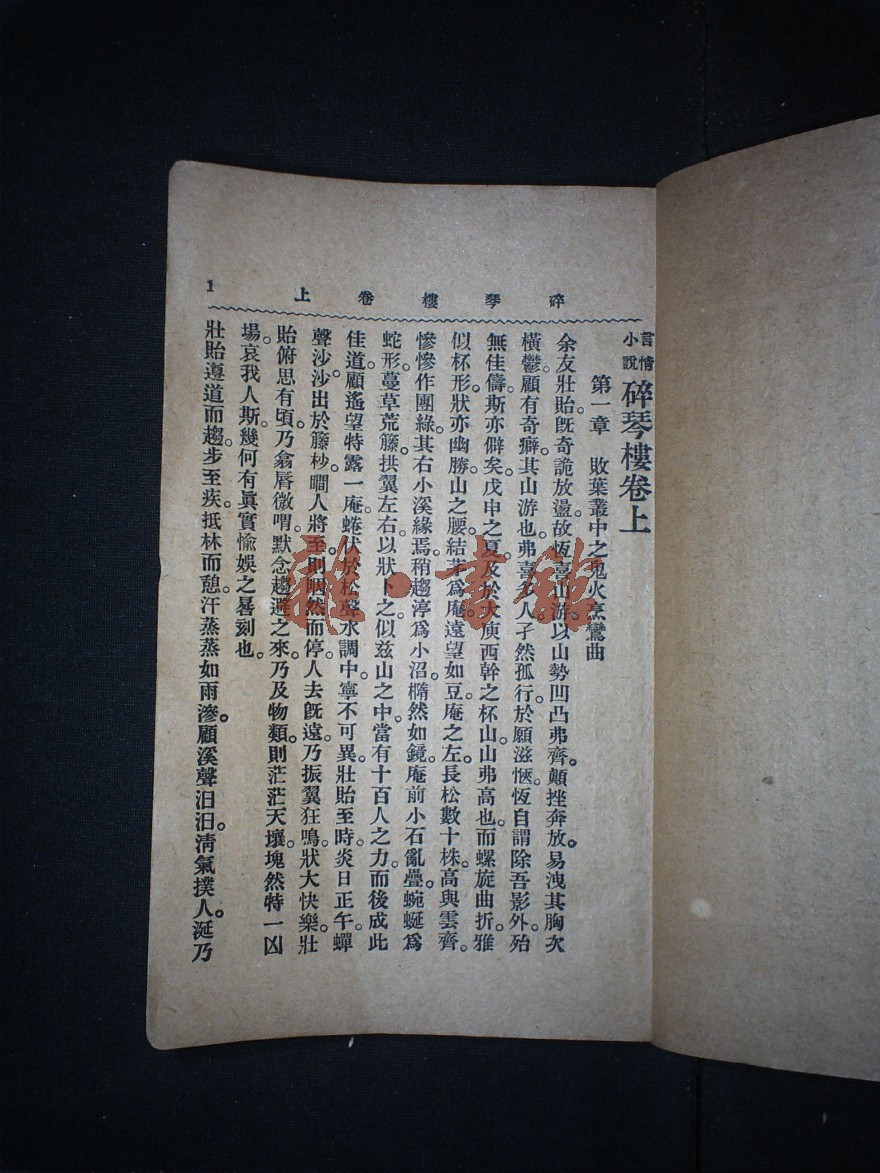 碎琴樓卷上 1
言情小說 碎琴樓卷上
第一章 敗葉叢中之鬼火烹鸞曲
余友壯貽旣奇詭放盪故恆喜山游以山勢凹凸弗齊。顛挫奔放。易洩其胸次
橫鬱。顧有奇癖其山游也弗喜多人孑然孤行於願滋愜恆自謂除吾影外殆
無佳儔。斯亦僻矣戊申之夏及於大庾西幹之杯山山弗高也。而螺旋曲折。雅
似杯形狀亦幽勝山之腰。結茅爲庵。遠望如豆庵之左。長松數十株。高與雲齊。
慘慘作團綠。其右小溪緣焉。稍趨渟爲小沼。橢然如鏡。庵前小石亂疊。蜿蜒爲
蛇形。蔓草荒籐。拱翼左右。以狀卜之。似茲山之中。當有十百人之力。而後成此
佳道顧遙望特露一庵。蜷伏於松聲水調中。寧不可異。壯貽至時。炎日正午。蟬
聲沙沙出於籐杪。瞯人將至。則啞然而停。人去旣遠。乃振翼狂鳴。狀大快樂。壯
貽俯思有頃。乃翕唇微喟。默念趨避之來。乃及物類。則茫茫天壤。塊然特一凶
場。哀我人斯。幾何有眞實愉娛之晷刻也。
壯貽遵道而趨。步至疾。抵林而憩。汗蒸蒸如雨滲。顧溪聲汨汨。淸氣撲人。涎乃
龍·書館